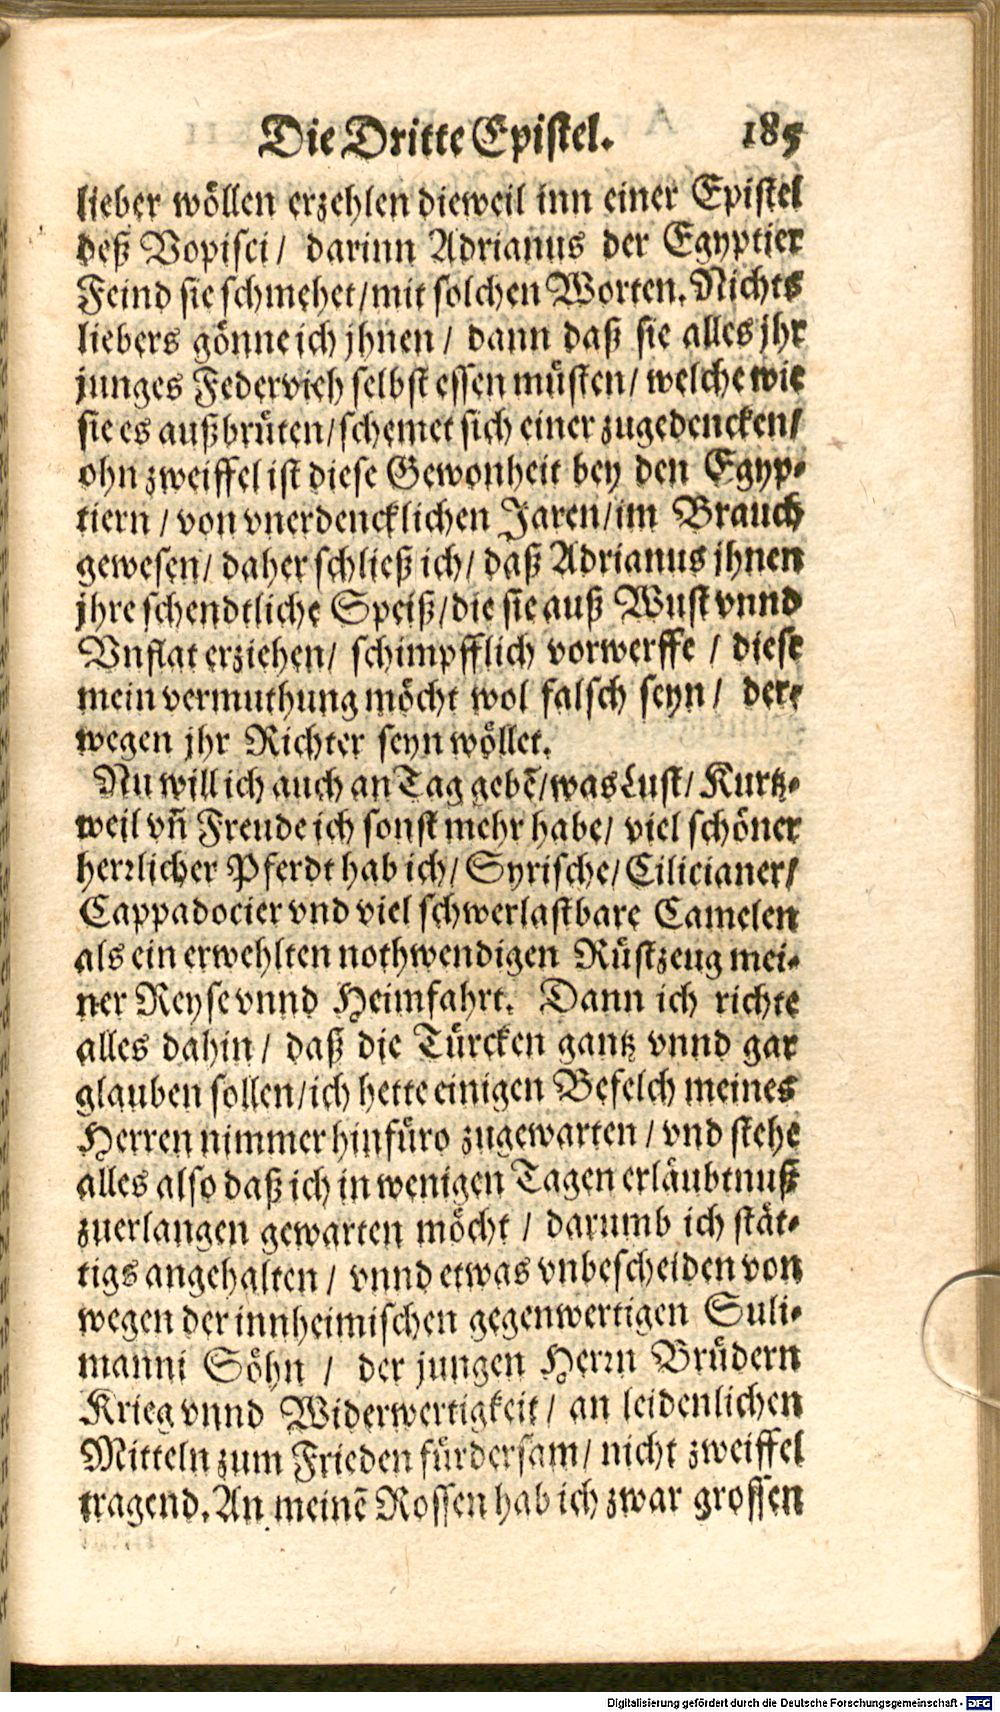 Die Dritte Epistel. 185
lieber wöllen erzehlen dieweil inn einer Epistel
deß Vopisci/ darinn Adrianus der Egyptier
Feind sie schmehet/mit solchen Worten. Nichts
liebers gönne ich jhnen/ dann daß sie alles jhr
junges Federvieh selbst essen müsten/ welche wie
sie es außbrüten/schemet sich einer zugedencken/
ohn zweiffel ist diese Gewonheit bey den Egyp-
tiern/von vnerdencklichen Jaren/im Brauch
gewesen/ daher schließ ich/ daß Adrianus jhnen
jhre schendtliche Speiß/die sie auß Wust vnnd
Vnflat erziehen/ schimpfflich vorwerffe / diese
mein vermuthung möcht wol falsch seyn/ der-
wegen jhr Richter seyn wöllet.
Nu will ich auch an Tag gebē/was Lust/ Kurtz-
weil vñ Freude ich sonst mehr habe/ viel schöner
herrlicher Pferdt hab ich/ Syrische/ Cilicianer/
Cappadocier vnd viel schwerlastbare Camelen
als ein erwehlten nothwendigen Rüstzeug mei-
ner Reyse vnnd Heimfahrt. Dann ich richte
alles dahin/ daß die Türcken gantz vnnd gar
glauben sollen/ich hette einigen Befelch meines
Herren nimmer hinfüro zugewarten / vnd stehe
alles also daß ich in wenigen Tagen erläubtnuß
zuerlangen gewarten möcht / darumb ich stät-
tigs angehalten / vnnd etwas vnbescheiden von
wegen der innheimischen gegenwertigen Suli-
manni Söhn / der jungen Herrn Brüdern
Krieg vnnd Widerwertigkeit/ an leidenlichen
Mitteln zum Frieden fürdersam/ nicht zweiffel
tragend. An meinē Rossen hab ich zwar grossen
Digitalisierung gefördert durch die Deutsche Forschungsgemeinschaft - DFG